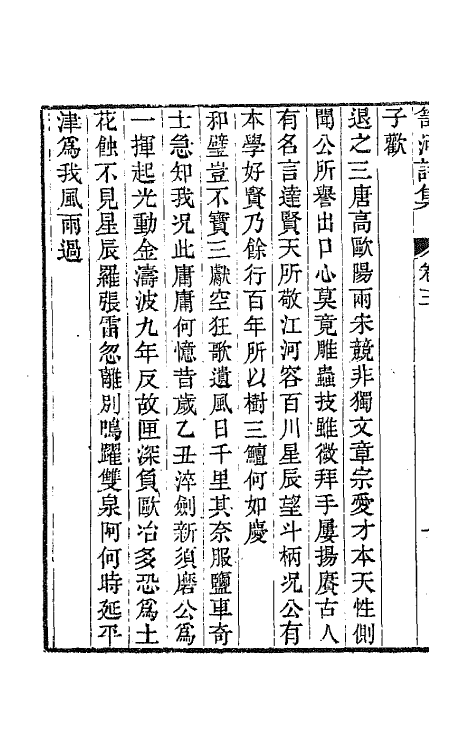 笥河詩集 卷三
子歡
退之三唐高歐陽兩宋競非獨文章宗愛才本天性側
聞公所譽出口心莫竟雕蟲技雖微拜手屢揚賡古人
有名言達賢天所敬江河容百川星辰望斗柄况公有
本學好賢乃餘行百年所以樹三鱣何如慶
和璧豈不寶三獻空狂歌遺風日千里其奈服鹽車奇
士急知我况此庸庸何憶昔歲乙丑淬劍新須磨公爲
一揮起光動金濤波九年反故匣深負歐冶多恐爲土
花蝕不見星辰羅張雷忽離別鳴躍雙泉阿何時延平
津爲我風雨過